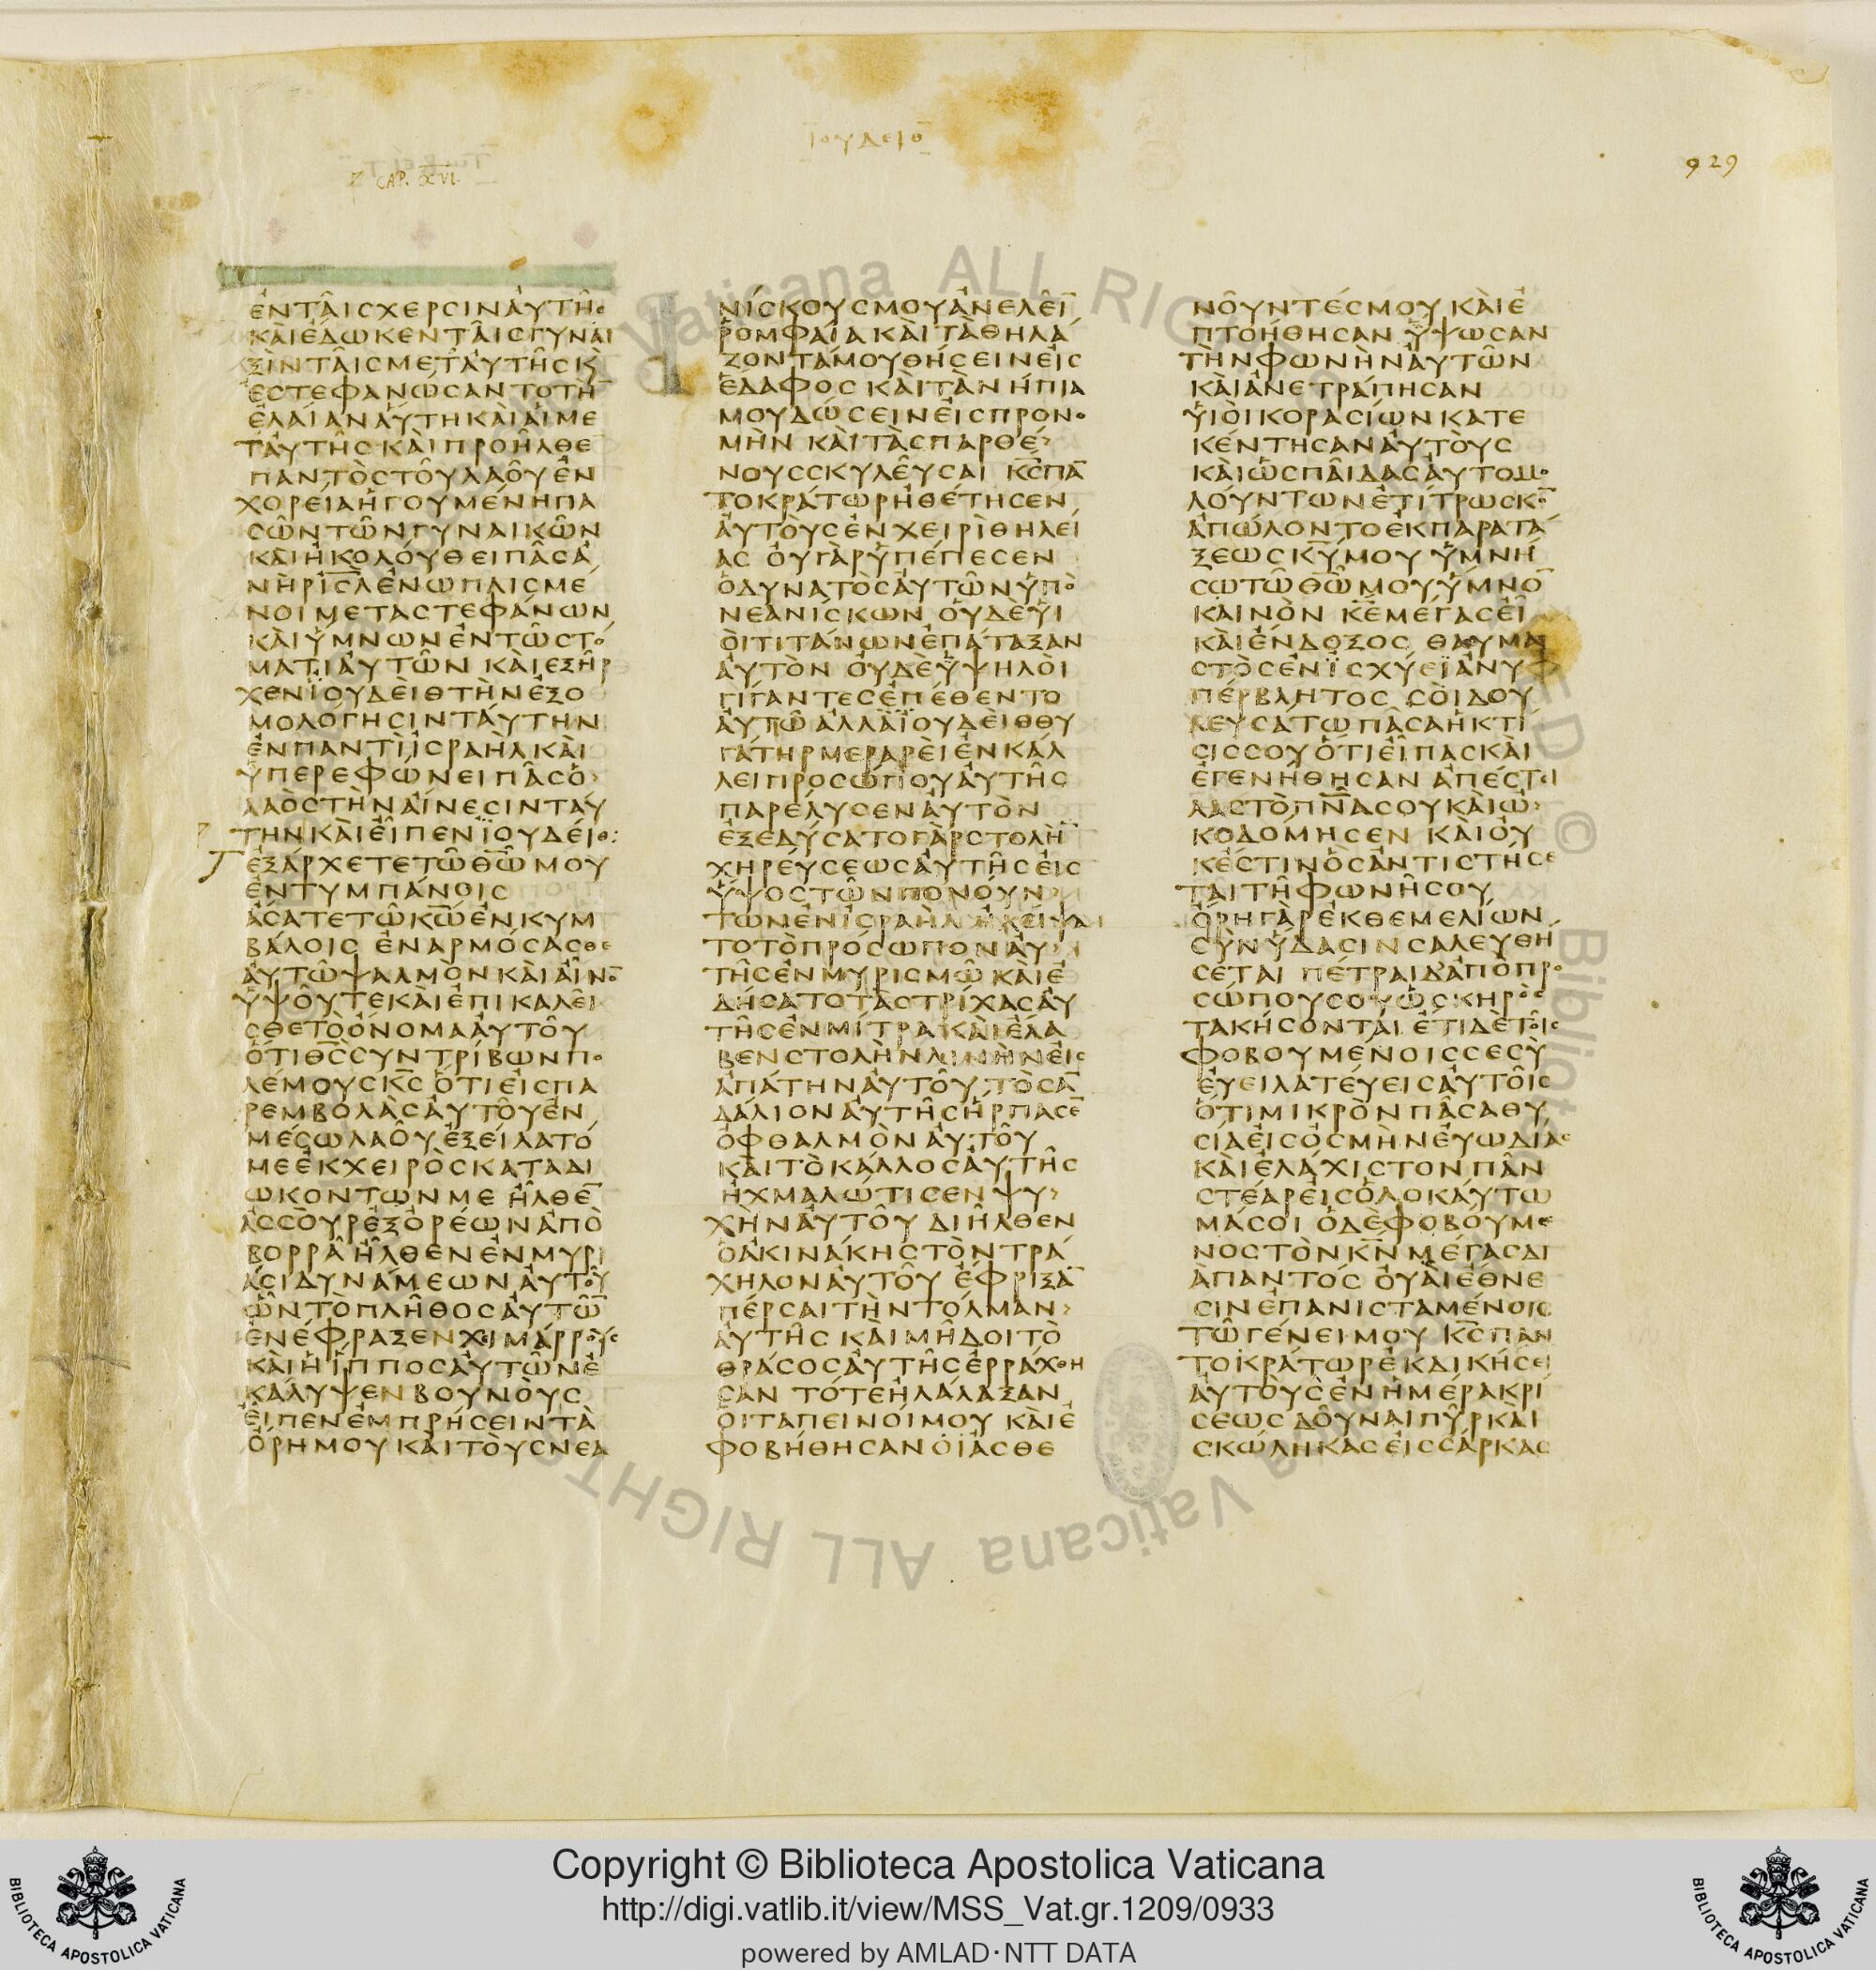 ΙΟΥΔΕΙΘ
CAP. XVI.
929
ἐντᾶιςχερςὶναὐτῆ·
καὶἔδωκενταῖςγυναι
ξὶνταῖςμεταὐτῆςκ
ἐςτεφανώςαντοτῇ
ἐλαίαναὐτηκαὶαἱμε
ταὐτῆςκαὶπροῆλθε
παντὸςτοῦλαοῦἐν
χορείαἡγουμένηπα
ςῶντῶνγυναικῶν
καὶἠκολόυθειπᾶςἀ
νὴρῑςλἐνωπλιςμέ
νοιμεταςτεφάνων
καὶὕμνωνἐντῶςτο
ματιἀυτῶν καὶεξῆρ
χενϊουδὲιθτὴνἐξο
μολόγηςινταύτην
ἐνπαντὶἰςραὴλκαὶ
ὑπερεφώνειπᾶςὁ
λαὸςτὴναἴνεςινταύ
τηνκαὶεἶπενϊουδείθ:
ἐξάρχετετῶθ̅ω̅μου
ἐντυμπάνοις
ἄςατετῶκ̅ω̅ἐνκυμ
βάλοις ἐναρμόςαςθε
ἀυτῶψαλμὸνκαὶαἶνο̅
ὑψοῦτεκαὶἐπικαλεῖ
ςθετὸὄνομααὐτοῦ
ὅτιθ̅ς̅ςυντρίβωνπο
λέμουςκ̅ς̅ ὅτιεἰςπα
ρεμβολὰςἀυτοῦἐν
μέςωλαοῦἐξείλατό
μεἐκχειρὸςκαταδι
ωκοντωνμε ἦλθε̅
ἀςςοὺρἐξὀρέωνἀπὸ
βορρᾶἦλθενἐνμυρι
άςιδυνάμεωναὐτοῦ
ὧντὸπλῆθοςἀυτῶ̅
ἐνέφραξενχιμάρρους
καὶἡἵπποςἀυτῶνἐ
κάλυψενβουνοὺς
εἶπενἐμπρήςειντὰ
ὄρημουκαὶτοὺςνεα
νίςκουςμουἀνελεῖ̅
ῥομφαίακαὶτὰθηλά
ζοντάμουθήςεινεἰς
ἔδαφοςκαὶτὰνήπιά
μουδώςεινεἰςπρονο
μὴν καὶτὰςπαρθέ›
νουςςκυλεῦςαι κ̅ς̅πα̅
τοκράτωρἠθέτηςεν
αὐτοὺςἐνχειρὶθηλεί
ας οὐγὰρὑπέπεςεν
ὁδυνατὸςἀυτῶνὑπὸ
νεανίςκων οὐδὲὑι
ὸιτιτάνωνἐπάταξαν
ἀυτὸν οὐδὲὑψηλὸι
γίγαντεςἐπέθεντο
ἀυτῶἀλλὰϊουδὲιθθυ
γάτηρμεραρὲιἐνκάλ
λειπροςώπουἀυτῆς
παρέλυςενἀυτὸν
ἐξεδύςατογὰρςτολὴ̅
χηρεύςεωςἀυτῆςεἰς
ὕψοςτῶνπονούν›
τωνἐνἰςραὴλ ἠλείψα
τοτὸπρόςωπονἀυ›
τῆςἐνμυριςμῶκαὶἐ
δήςατοτὰςτρίχαςἀυ
τῆςἐνμίτρακαὶἔλα
βενςτολὴνλινὴνεἰς
ἀπάτηναὐτοῦ τὸςα̅
δάλιονἀυτῆςἥρπαςε̅
ὀφθαλμὸναὐτοῦ
καὶτὸκάλλοςἀυτῆς
ἠχμαλώτιςενψυ›
χὴναὐτοῦ διῆλθεν
ὁἀκινάκηςτὸντρά
χηλοναὐτοῦ ἔφριξα̅
πέρςαιτὴντόλμαν›
ἀυτῆς καὶμῆδοιτὸ
θράςοςἀυτῆςἐρράχθη
ςαν τότεἠλάλαξαν
ὁιταπεινόιμου καὶἐ
φοβήθηςανὁιἀςθε
νοῦντέςμου καὶἐ
πτοήθηςαν ὕψωςαν
τὴνφωνὴνἀυτῶν
καὶἀνετράπηςαν
ὑιὸικοραςίωνκατε
κέντηςαναὐτοὺς
καὶὡςπαῖδαςἀυτομο
λούντωνἐτίτρωςκο̅
ἀπώλοντοἐκπαρατά
ξεωςκ̅υ̅μου ὑμνή
ςωτῶθ̅ω̅μουὕμνο̅
καινὸν κ̅ε̅μέγαςεἶ
καὶἔνδοξος θαυμα
ςτὸςἐνϊςχύεϊἀνυ
πέρβλητος ςὸιδου
λευςάτωπᾶςαἡκτί
ςιςςουὅτιεἶπαςκαὶ
ἐγενήθηςαν ἀπέςτει
λαςτὸπ̅ν̅α̅ςουκαὶὠ›
κοδόμηςεν καὶοὐ
κέςτινὃςἀντιςτήςε
ταιτῆφωνῆςου
ὄρηγὰρἐκθεμελίων
ςὺνὕδαςινςαλευθή
ςεται πέτραιδἀπὸπρο
ςώπουςουὡςκηρὸς
τακήςονται ἔτιδὲτοῖς
φοβουμένοιςςεςὺ
ἐυειλατέυειςἀυτοῖς
ὅτιμικρὸνπᾶςαθυ
ςίαεἰςὀςμὴνἐυωδίας
καὶἐλάχιςτονπᾶν
ςτέαρεἰςὁλοκάυτω
μάςοι ὁδὲφοβούμε
νοςτὸνκ̅ν̅μέγαςδι
ὰπαντός ὀυὰιἔθνε
ςινἐπανιςταμένοις
τῶγένειμου κ̅ς̅παν
τοκράτωρἐκδικήςει
ἀυτοὺςἐνἡμέρακρί
ςεωςδοῦναιπῦρκαὶ
ςκώληκαςεἰςςάρκας
Copyright © Biblioteca Apostolica Vaticana
http://digi.vatlib.it/view/MSS_Vat.gr.1209/0933
powered by AMLAD·NTT DATA
BIBLIOTECA APOSTOLICA VATICANA
BIBLIOTECA APOSTOLICA VATICANA